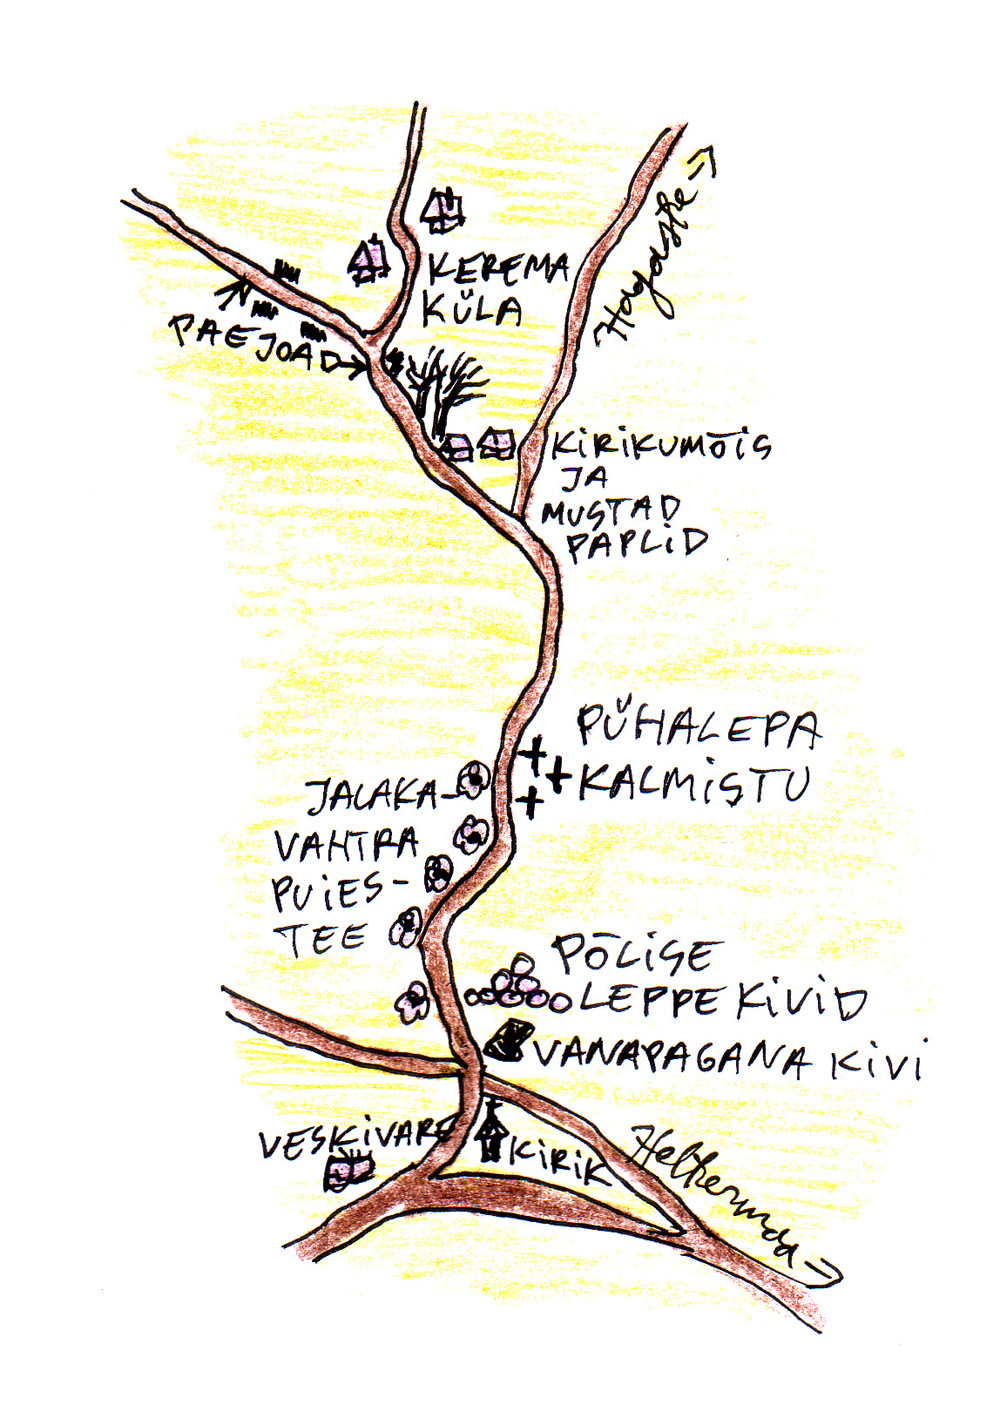 Hagaste →
KEREMA
KÜLA
PAEJOAD →
KIRIKUMÕIS
JA
MUSTAD
PAPLID
PÜHALEPA
KALMISTU
JALAKA-
VAHTRA
PUIES-
TEE
PÕLISE
LEPPE KIVID
VANAPAGANA KIVI
VESKIVARE
KIRIK
Heltermaa →